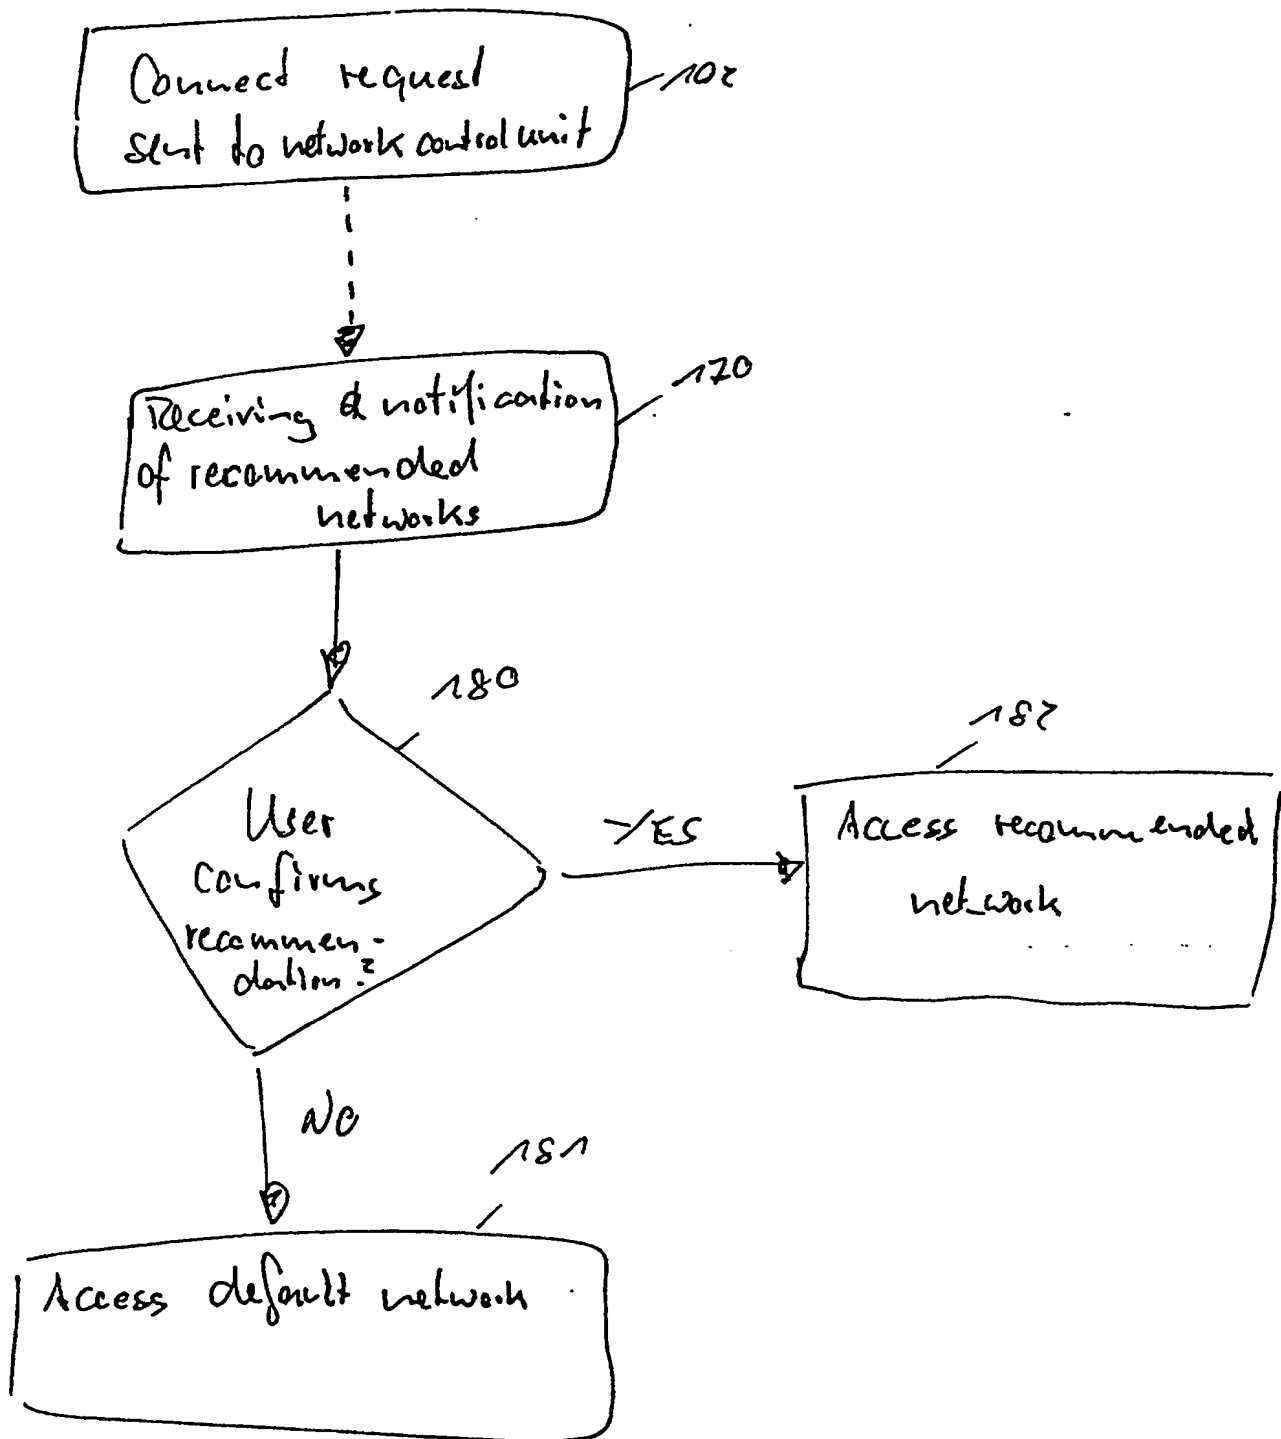 Connect request
sent to network control unit
102
170
Receiving & notification
of recommended
networks
180
User
confirms
recommen-
dation?
YES
182
Access recommended
network
NO
181
Access default network